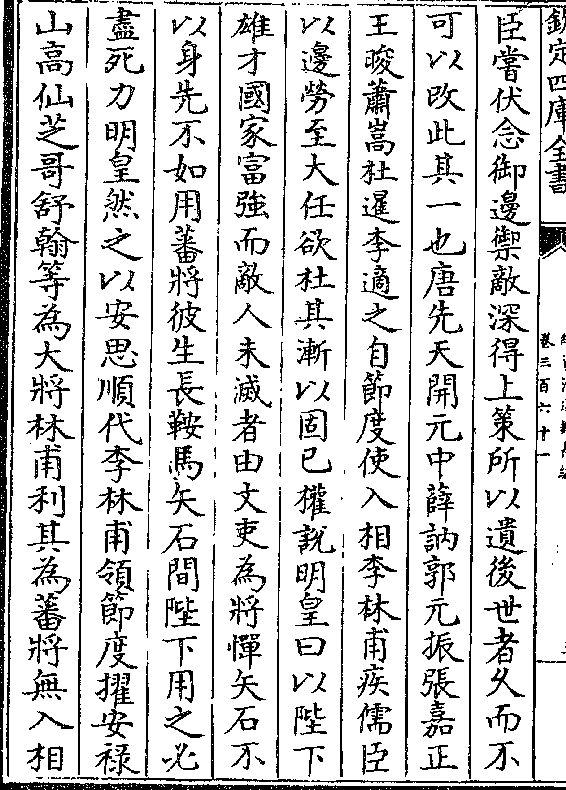 欽定四庫全書
卷三百六十一
臣嘗伏念御邊禦敵深得上策所以遺後世者乆而不
可以改此其一也唐先天開元中薛訥郭元振張嘉正
王晙蕭嵩杜暹李適之自節度使入相李林甫疾儒臣
以邊勞至大任欲杜其漸以固己權說明皇曰以陛下
雄才國家富強而敵人未滅者由文吏為將憚矢石不
以身先不如用蕃將彼生長鞍馬矢石間陛下用之必
盡死力明皇然之以安思順代李林甫領節度擢安禄
山高仙芝哥舒翰等為大將林甫利其為蕃將無入相